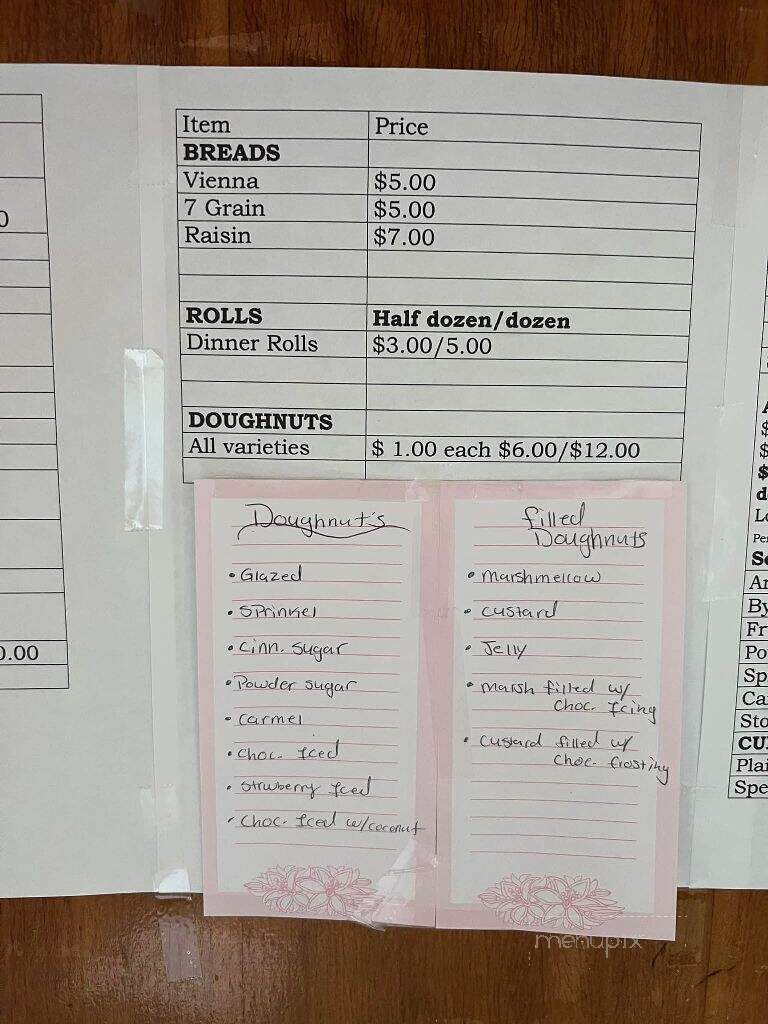 Item Price
BREADS
Vienna $5.00
7 Grain $5.00
Raisin $7.00
ROLLS Half dozen/dozen
Dinner Rolls $3.00/5.00
DOUGHNUTS
All varieties $ 1.00 each $6.00/$12.00
Doughnut's
• Glazed
• Sprinkel
• Cinn. Sugar
• Powder sugar
• Carmel
• Choc. Iced
• Struberry Iced
• Choc. Iced w/coconut
filled
Doughnuts
• Marshmellow
• Custard
• Jelly
• Marsh filled w/
Choc. Icing
• Custard filled w/
Choc. frosting
0
0.00
$
$
$
Se
By
Fr
Po
Sp
Ca
Sto
CU
Plai
Spe
menupix